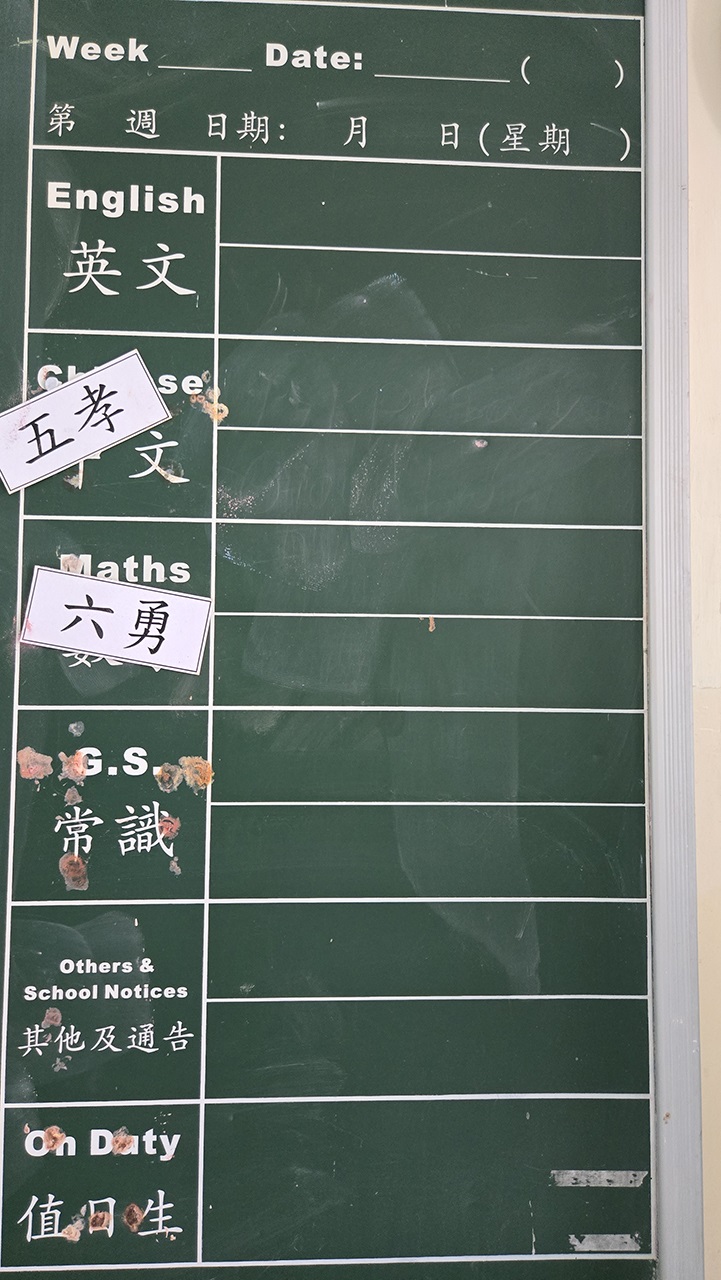 Week ____ Date: ______ ( )
第 週 日期: 月 日(星期 )
English
英文
五孝
文
Maths
六勇
G.S.
常識
Others &
School Notices
其他及通告
On Duty
值日生